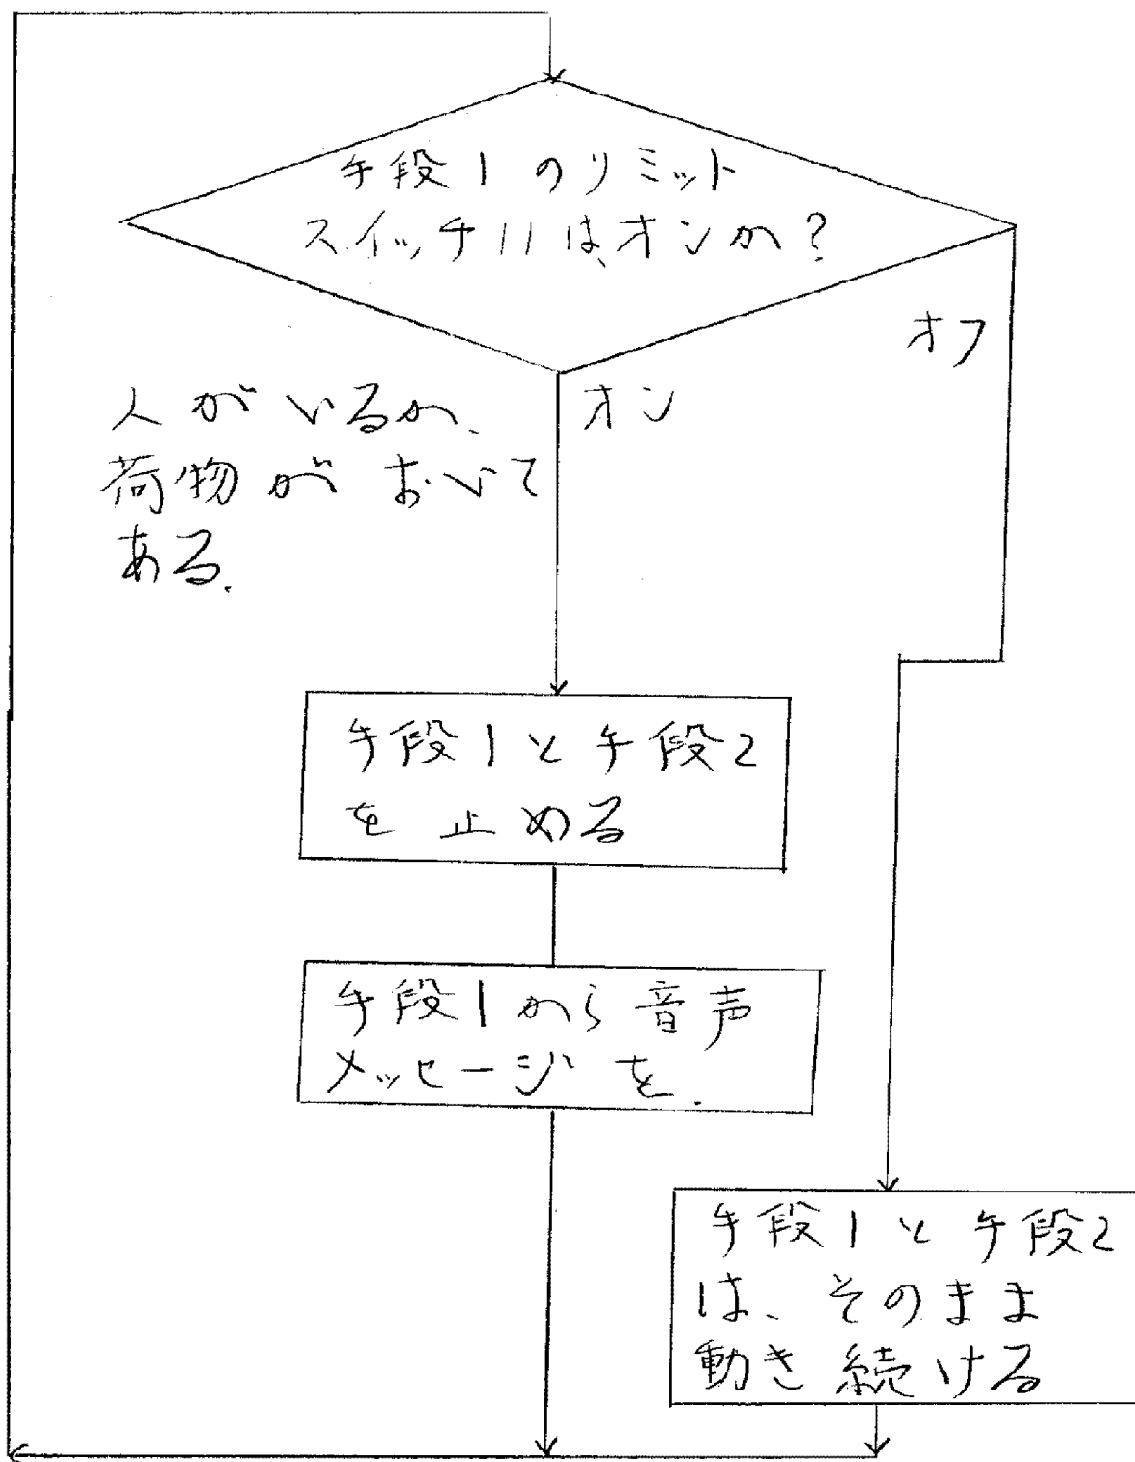 手段1のリミット
スイッチ11は、オンか?
オフ
オン
人がいるか、
荷物がおいて
ある。
手段1と手段2
を止める
手段1から音声
メッセージを.
手段1と手段2
は、そのまま
動き続ける